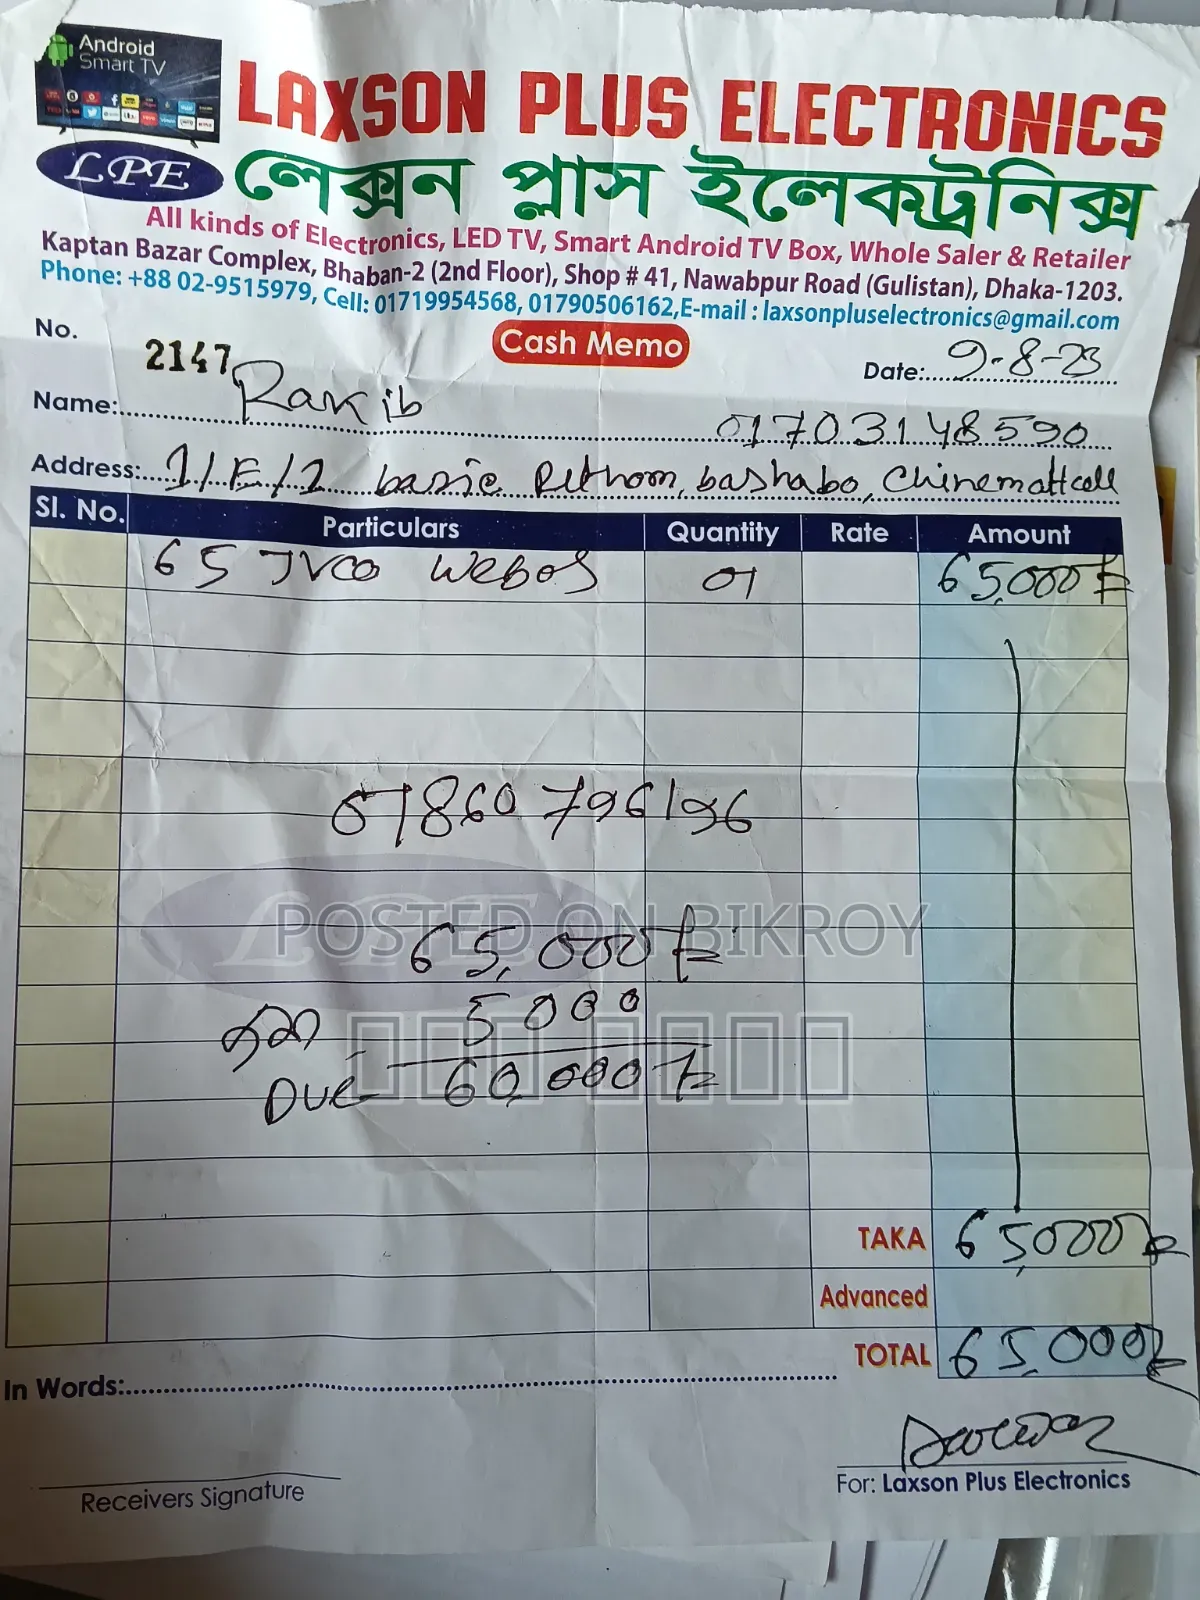 Android
Smart TV
LPE
LAXSON PLUS ELECTRONICS
লেক্সন প্লাস ইলেকট্রনিক্স
All kinds of Electronics, LED TV, Smart Android TV Box, Whole Saler & Retailer
Kaptan Bazar Complex, Bhaban-2 (2nd Floor), Shop # 41, Nawabpur Road (Gulistan), Dhaka-1203.
Phone: +88 02-9515979, Cell: 01719954568, 01790506162,E-mail : laxsonpluselectronics@gmail.com
No. 2147
Cash Memo
Date: 9-8-23
Name: Rakib 01703148590
Address: 1/E/1 bashabo,
Sl. No. Particulars Quantity Rate Amount
65 JVCO Webos 01 65,000
01860796196
POSTED ON BIKROY
65,000
জমা 5000
Due 60,000
TAKA 65,000
Advanced
TOTAL 65,000
In Words:
Receivers Signature
For: Laxson Plus Electronics